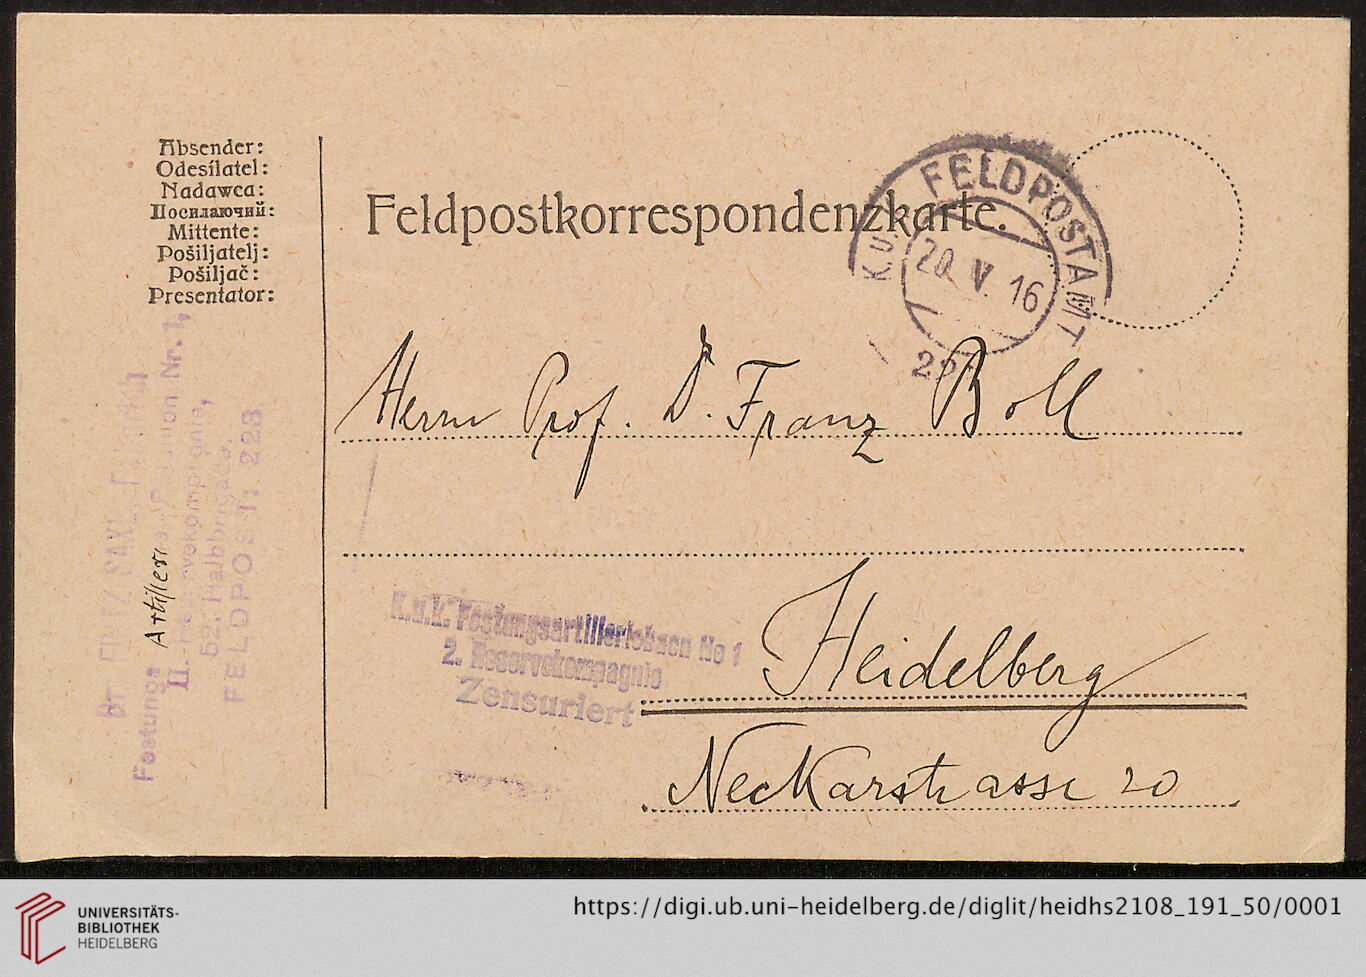 Absender:
Odesílatel:
Nadawca:
Посилаючий:
Mittente:
Pošiljatelj:
Pošiljač:
Presentator:
Feldpostkorrespondenzkarte.
K.u.K. FELDPOSTAMT
20. V. 16
Herrn Prof. Dr. Franz Boll
Heidelberg
Neckarstrasse 20
K.u.k. Festungsartilleriebaon No 1
2. Reservekompagnie
Zensuriert
Dr. FRITZ SAXL
Festungs Artillerie Nr. 1,
II. Reservekompagnie,
52. Halbbrigade.
FELDPOST: 223
UNIVERSITÄTS-
BIBLIOTHEK
HEIDELBERG
https://digi.ub.uni-heidelberg.de/diglit/heidhs2108_191_50/0001